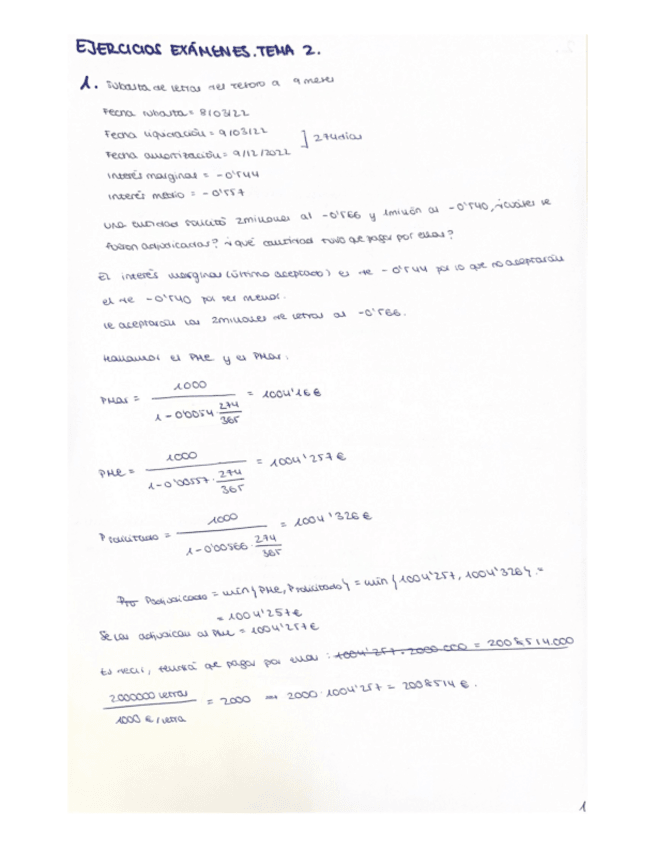 EJERCICIOS EXÁMENES. TEMA 2.
1. Subasta de letras del tesoro a 9 meses
Fecha subasta = 8/03/22
Fecha liquidación = 9/03/22
] 274 días
Fecha amortización = 9/12/2022
Interés marginal = -0'544
Interés medio = -0'557
Una entidad solicitó 2 millones al -0'566 y 1 millón al -0'540, ¿cuáles le
fueron adjudicadas? ¿qué cantidad tuvo que pagar por ellas?
El interés marginal (último aceptado) es de -0'544 por lo que no aceptarán
el de -0'540 por ser menor.
Se aceptarán los 2 millones de letras al -0'566.
Hallamos el PME y el PMar:
PMar = 1000 / 1-0'0054·274/365 = 1004'16 €
PMe = 1000 / 1-0'00557·274/365 = 1004'257 €
P solicitado = 1000 / 1-0'00566·274/365 = 1004'326 €
Padjudicado = min{PMe, Psolicitado} = min{1004'257, 1004'326}. =
= 1004'257€
Se las adjudican al PMe = 1004'257€
Es decir, tendrá que pagar por ellas: 1004'257·2000.000 = 2008514.000
2000000 letras / 1000 €/letra = 2000 → 2000·1004'257 = 2008514 €.
1